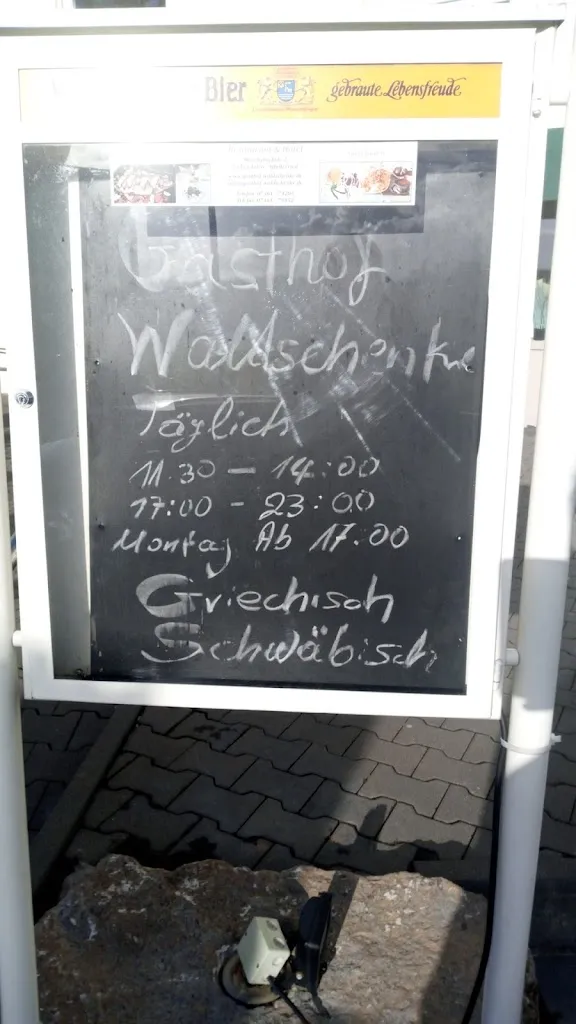 Bier gebraute Lebensfreude
Gasthof
Waldschenke
Täglich
11.30 – 14:00
17:00 – 23:00
Montag Ab 17.00
Griechisch
Schwäbisch